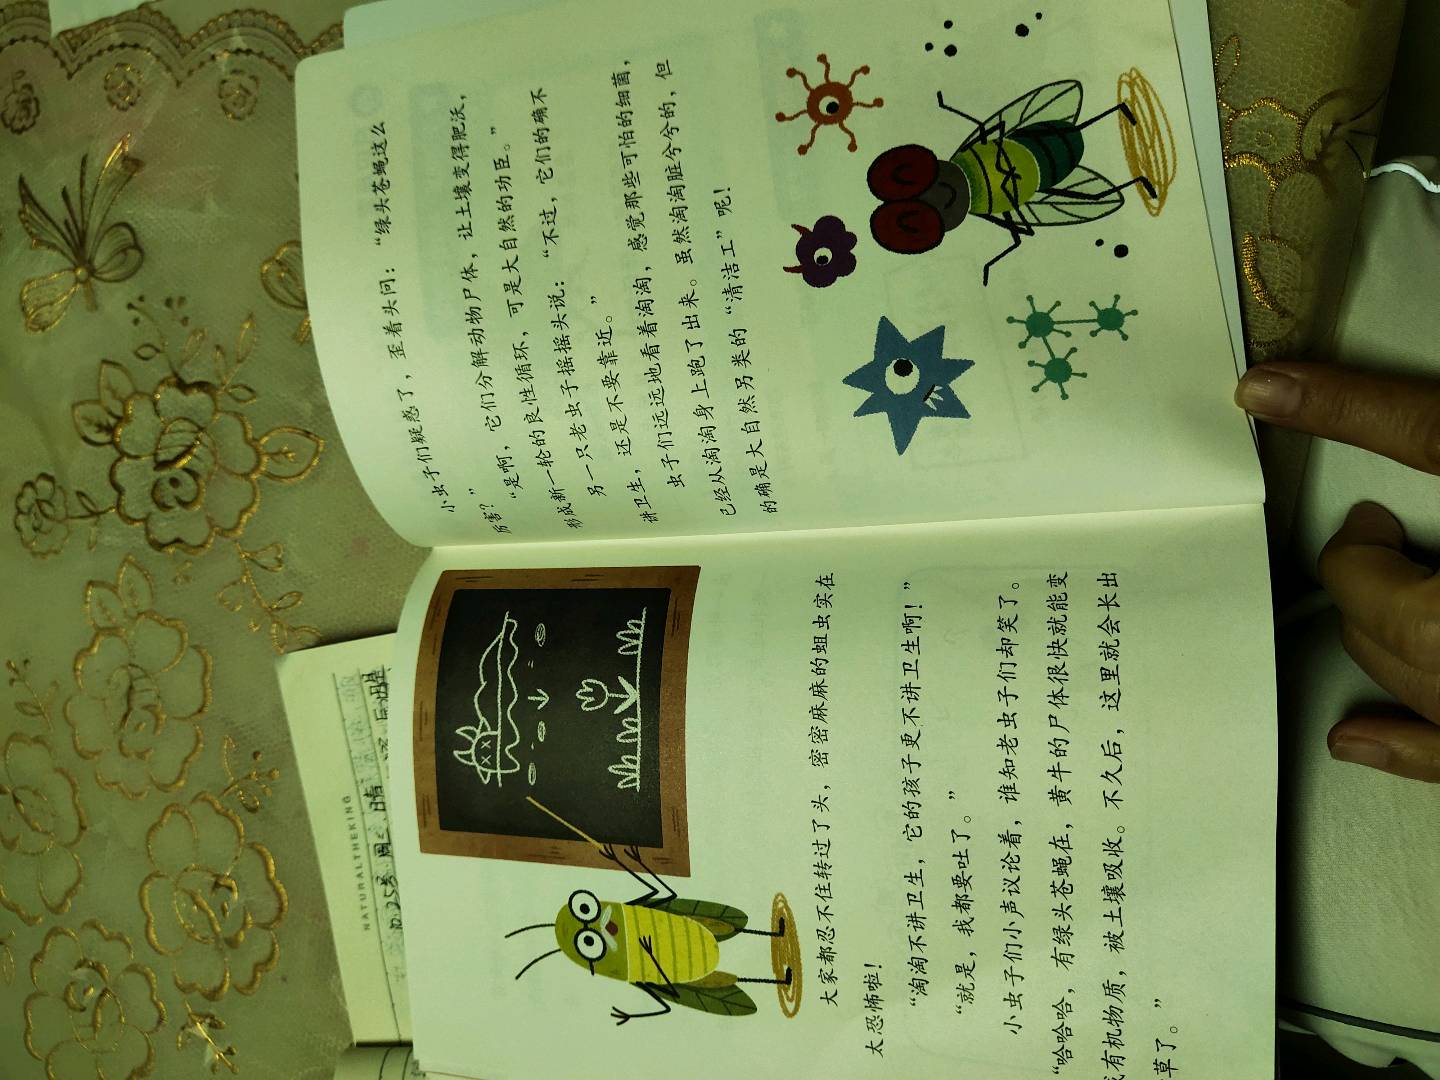 大家都忍不住转过了头，密密麻麻的蛆虫实在
太恐怖啦！
“淘淘不讲卫生，它的孩子更不讲卫生啊！”
“就是，我都要吐了。”
小虫子们小声议论着，谁知老虫子们却笑了。
“哈哈哈，有绿头苍蝇在，黄牛的尸体很快就能变
成有机物质，被土壤吸收。不久后，这里就会长出
草了。”
小虫子们疑惑了，歪着头问：“绿头苍蝇这么
厉害？”
“是啊，它们分解动物尸体，让土壤变得肥沃，
形成新一轮的良性循环，可是大自然的功臣。”
另一只老虫子摇摇头说：“不过，它们的确不
讲卫生，还是不要靠近。”
虫子们远远地看着淘淘，感觉那些可怕的细菌，
已经从淘淘身上跑了出来。虽然淘淘脏兮兮的，但
的确是大自然另类的“清洁工”呢！
NATURALTHEKING
10.25号 周 晴